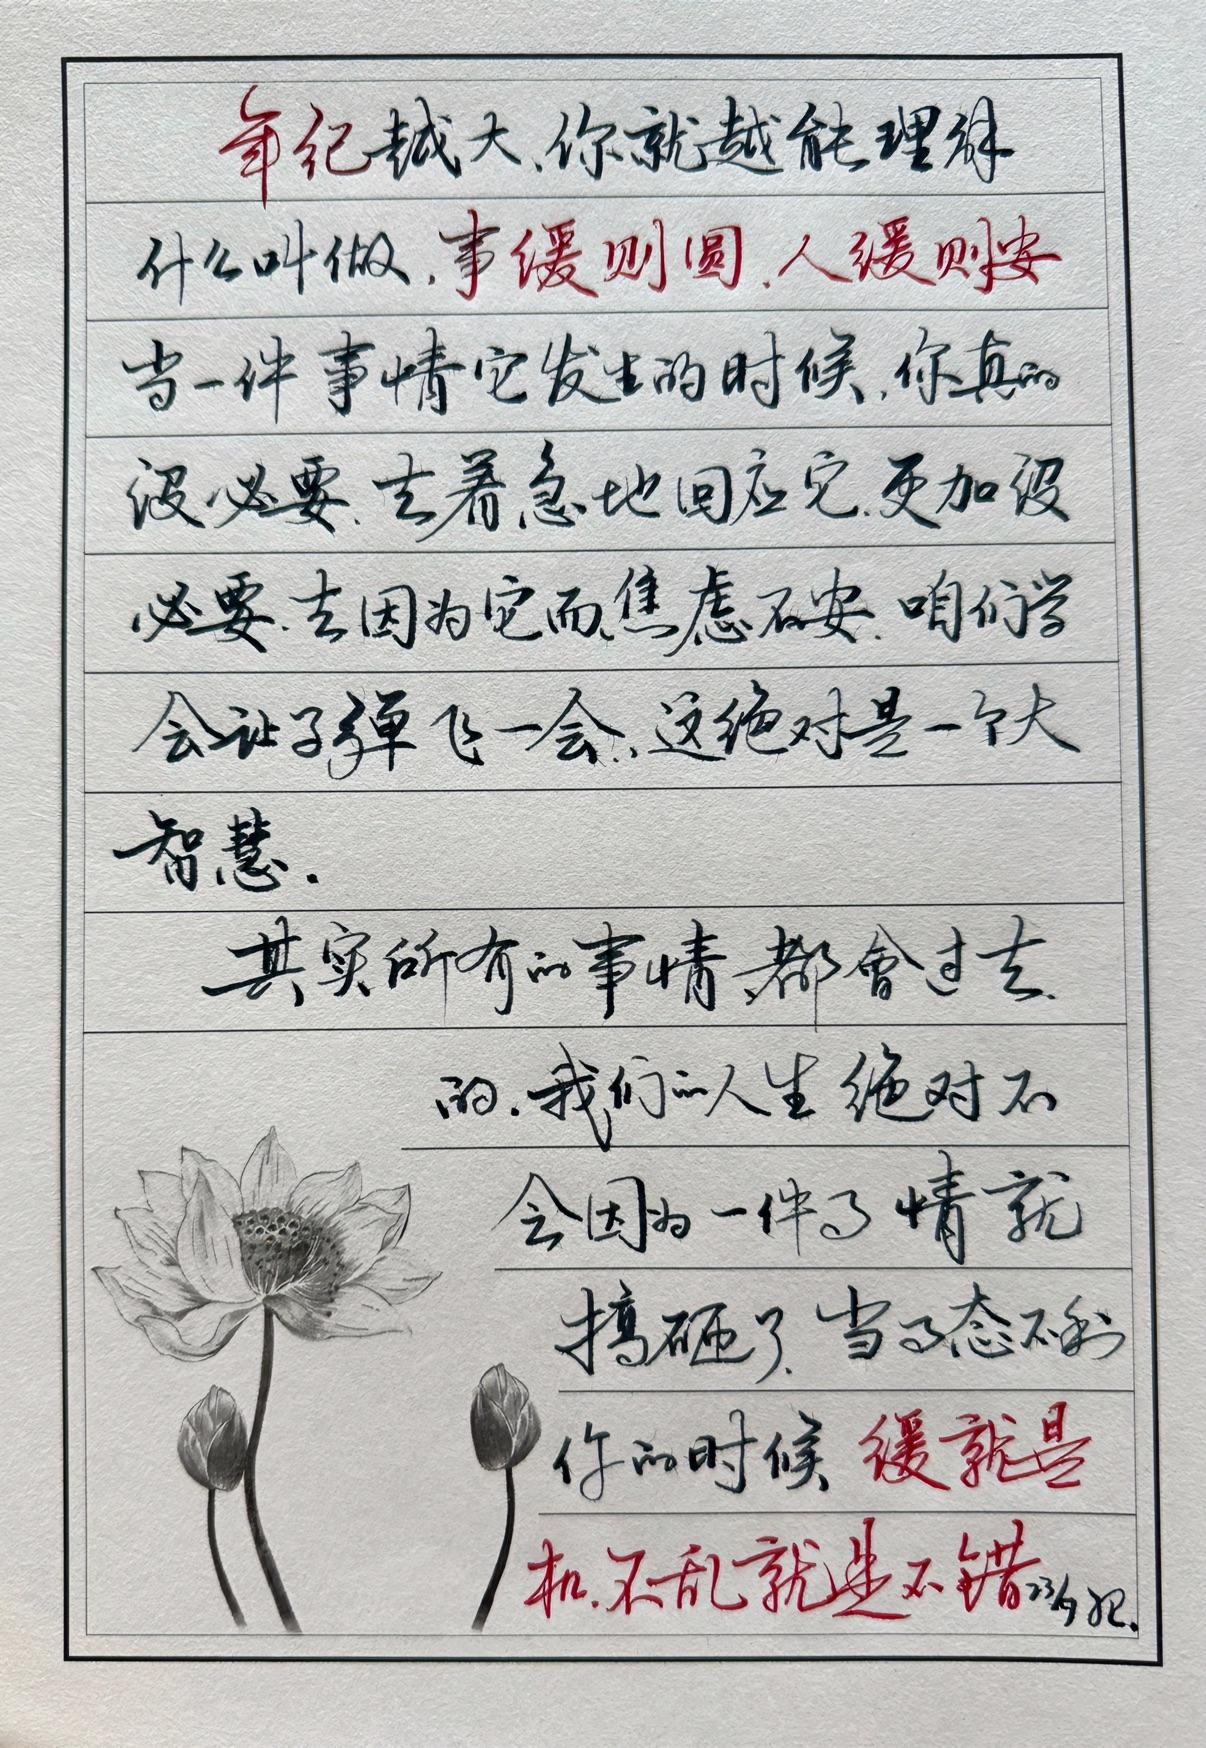 年纪越大、你就越能理解
什么叫做、事缓则圆、人缓则安
当一件事情它发生的时候、你真的
没必要、去着急地回应它、更加没
必要、去因为它而焦虑不安、咱们学
会让子弹飞一会、这绝对是一个大
智慧.
其实所有的事情、都會过去、
的、我们的人生绝对不
会因为一件事情就
搞砸了、当事态不利
你的时候 缓就是
机、不乱就是不错